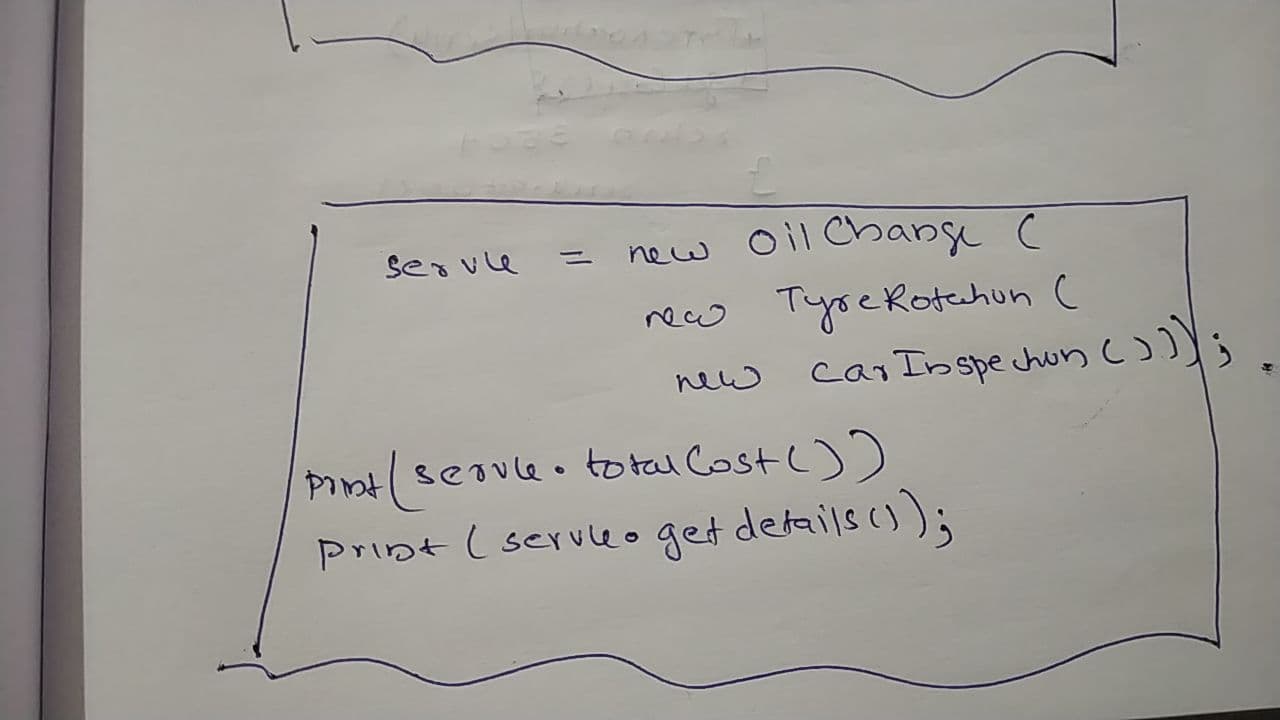 service = new OilChange (
new TyreRotation (
new CarInspection ()));
print(service.totalCost())
print (service.getdetails());